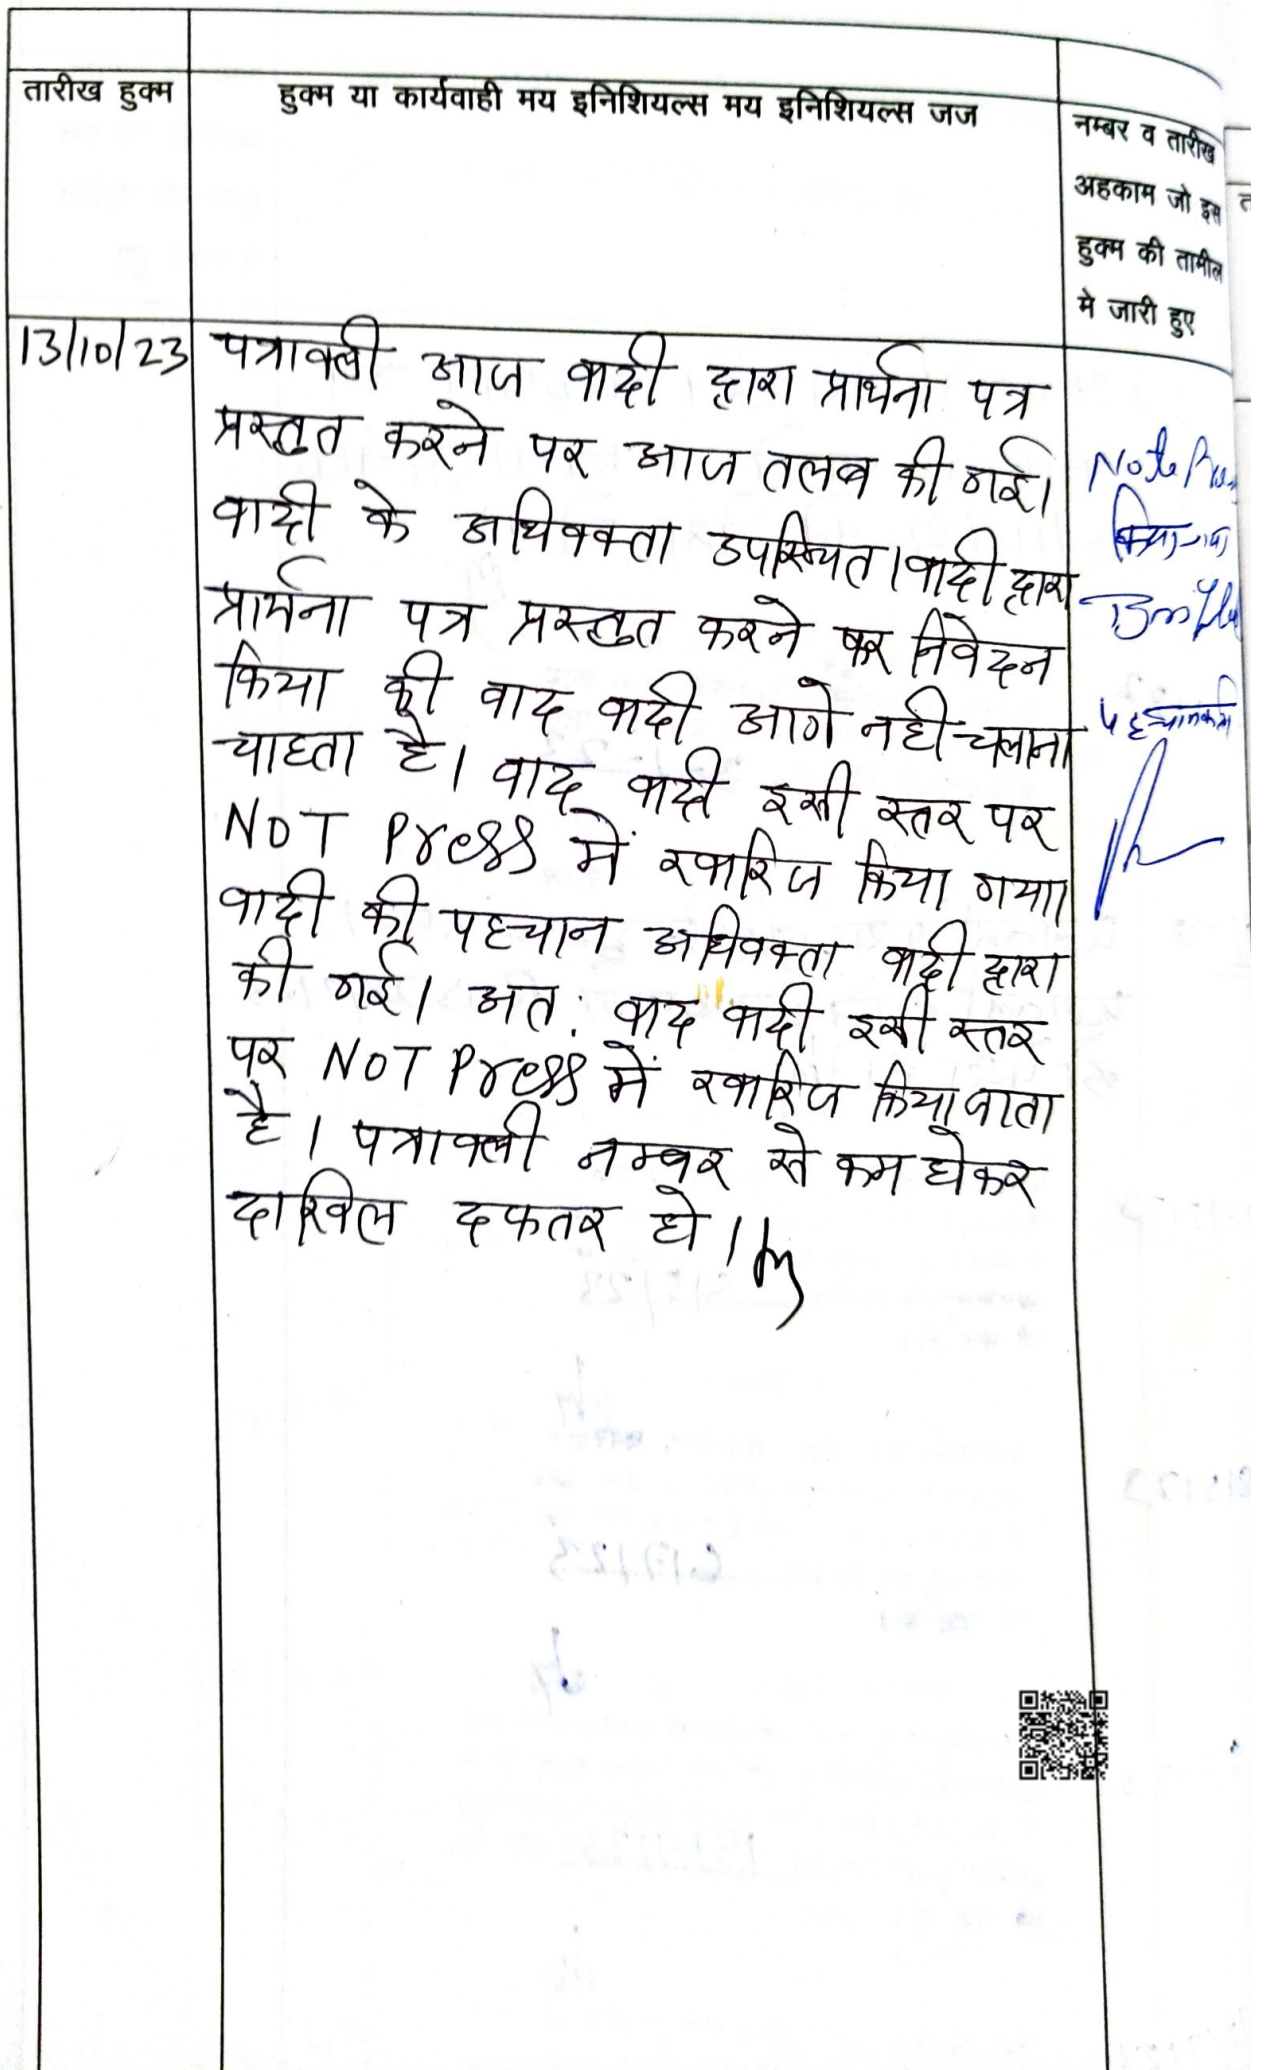 तारीख हुक्म
हुक्म या कार्यवाही मय इनिशियल्स मय इनिशियल्स जज
नम्बर व तारीख
अहकाम जो इस
हुक्म की तामील
मे जारी हुए
13/10/23
पत्रावली आज वादी द्वारा प्रार्थना पत्र
प्रस्तुत करने पर आज तलब की गई।
वादी के अधिवक्ता उपस्थित। वादी द्वारा
प्रार्थना पत्र प्रस्तुत करने पर निवेदन
किया की वाद वादी आगे नही चलाना
चाहता है। वाद वादी इसी स्तर पर
NOT Press में खारिज किया गया।
वादी की पहचान अधिवक्ता वादी द्वारा
की गई। अत: वाद वादी इसी स्तर
पर NOT Press में खारिज किया जाता
है। पत्रावली नम्बर से कम होकर
दाखिल दफतर हो।
पहचानकर्ता